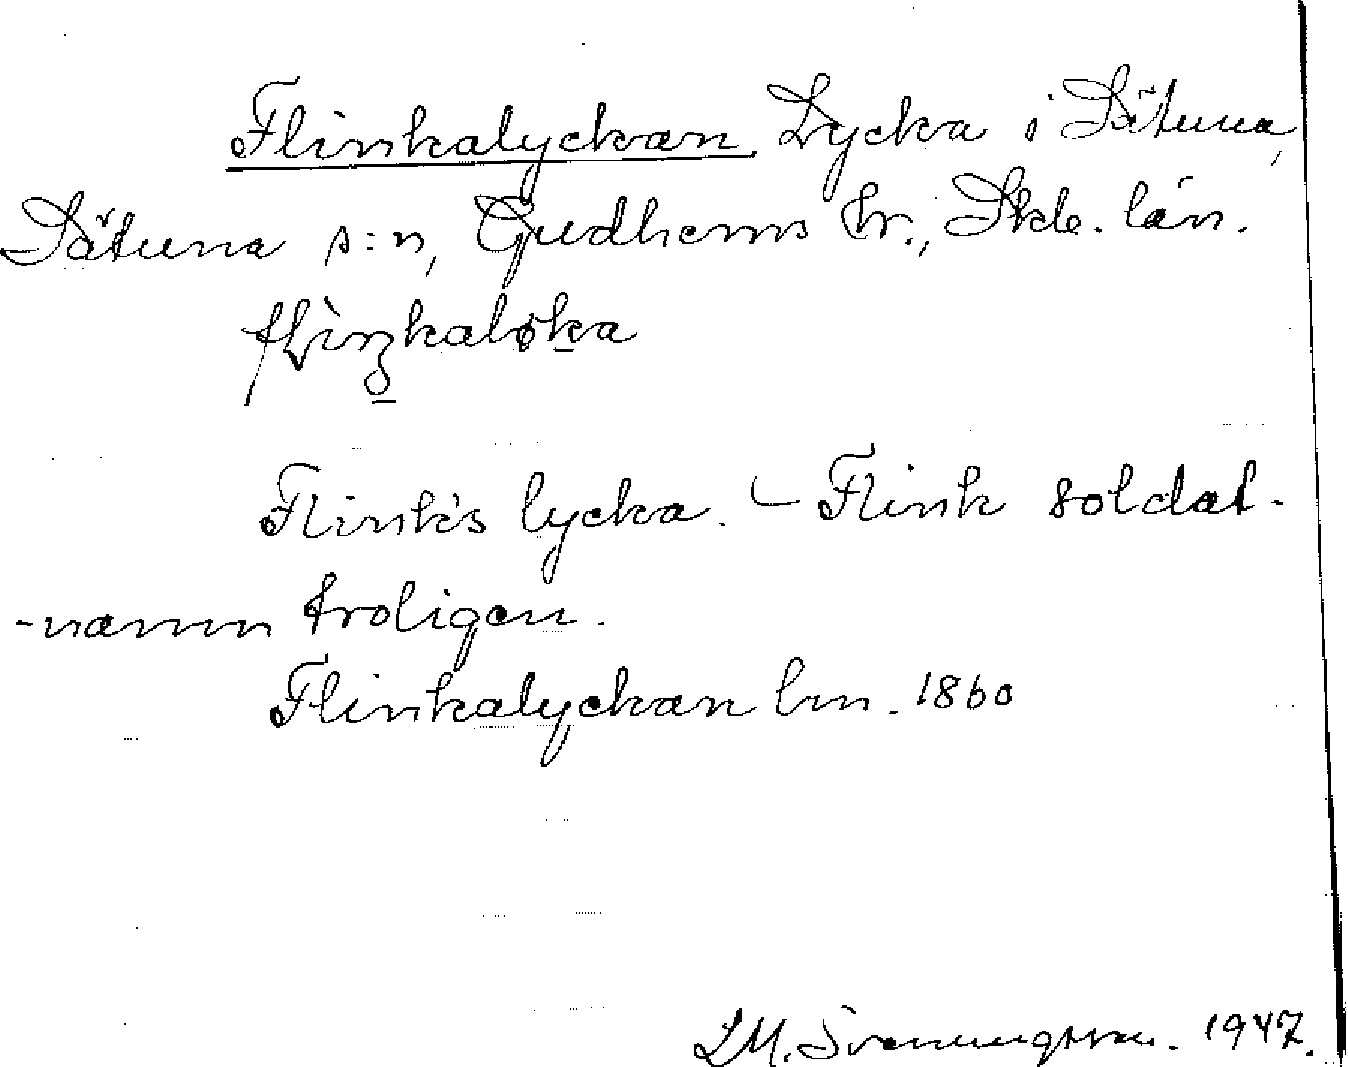 Flinkalyckan Lycka i Sätuna,
Sätuna s:n, Gudhems hr., Skb. län.
flìŋkaløka
Flink's lycka. – Flink soldat-
-namn troligen.
Flinkalyckan lm. 1860
LM. Svenungsson. 1947.